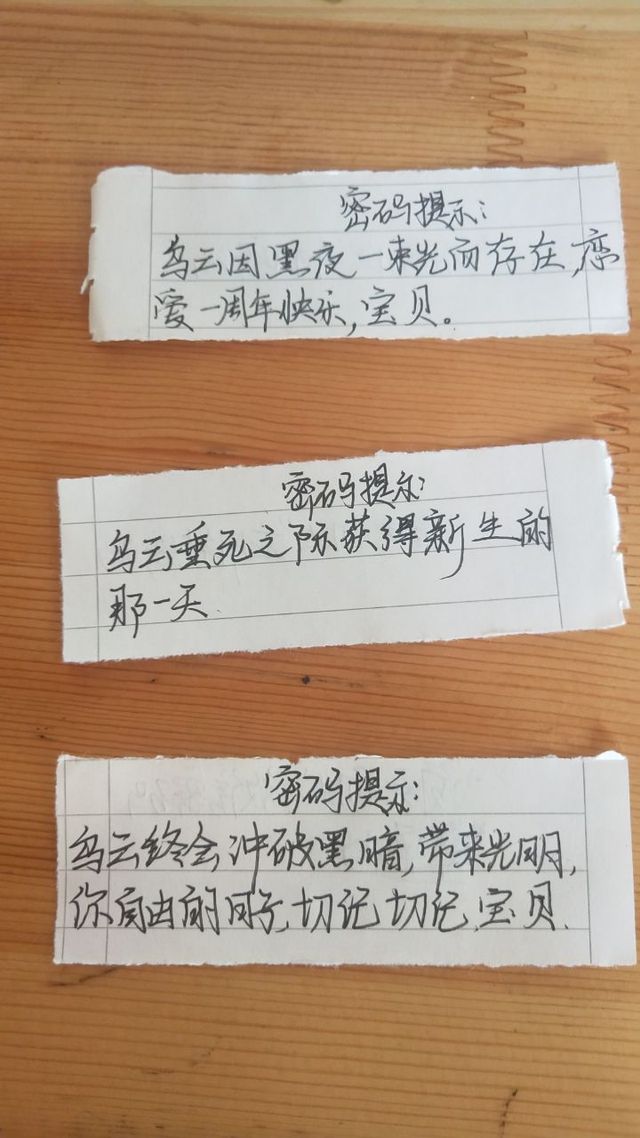 密码提示：
乌云因黑夜一束光而存在，恋
爱一周年快乐，宝贝。
密码提示：
乌云垂死之际获得新生的
那一天.
密码提示：
乌云终会冲破黑暗，带来光明，
你自由的日子，切记切记，宝贝.